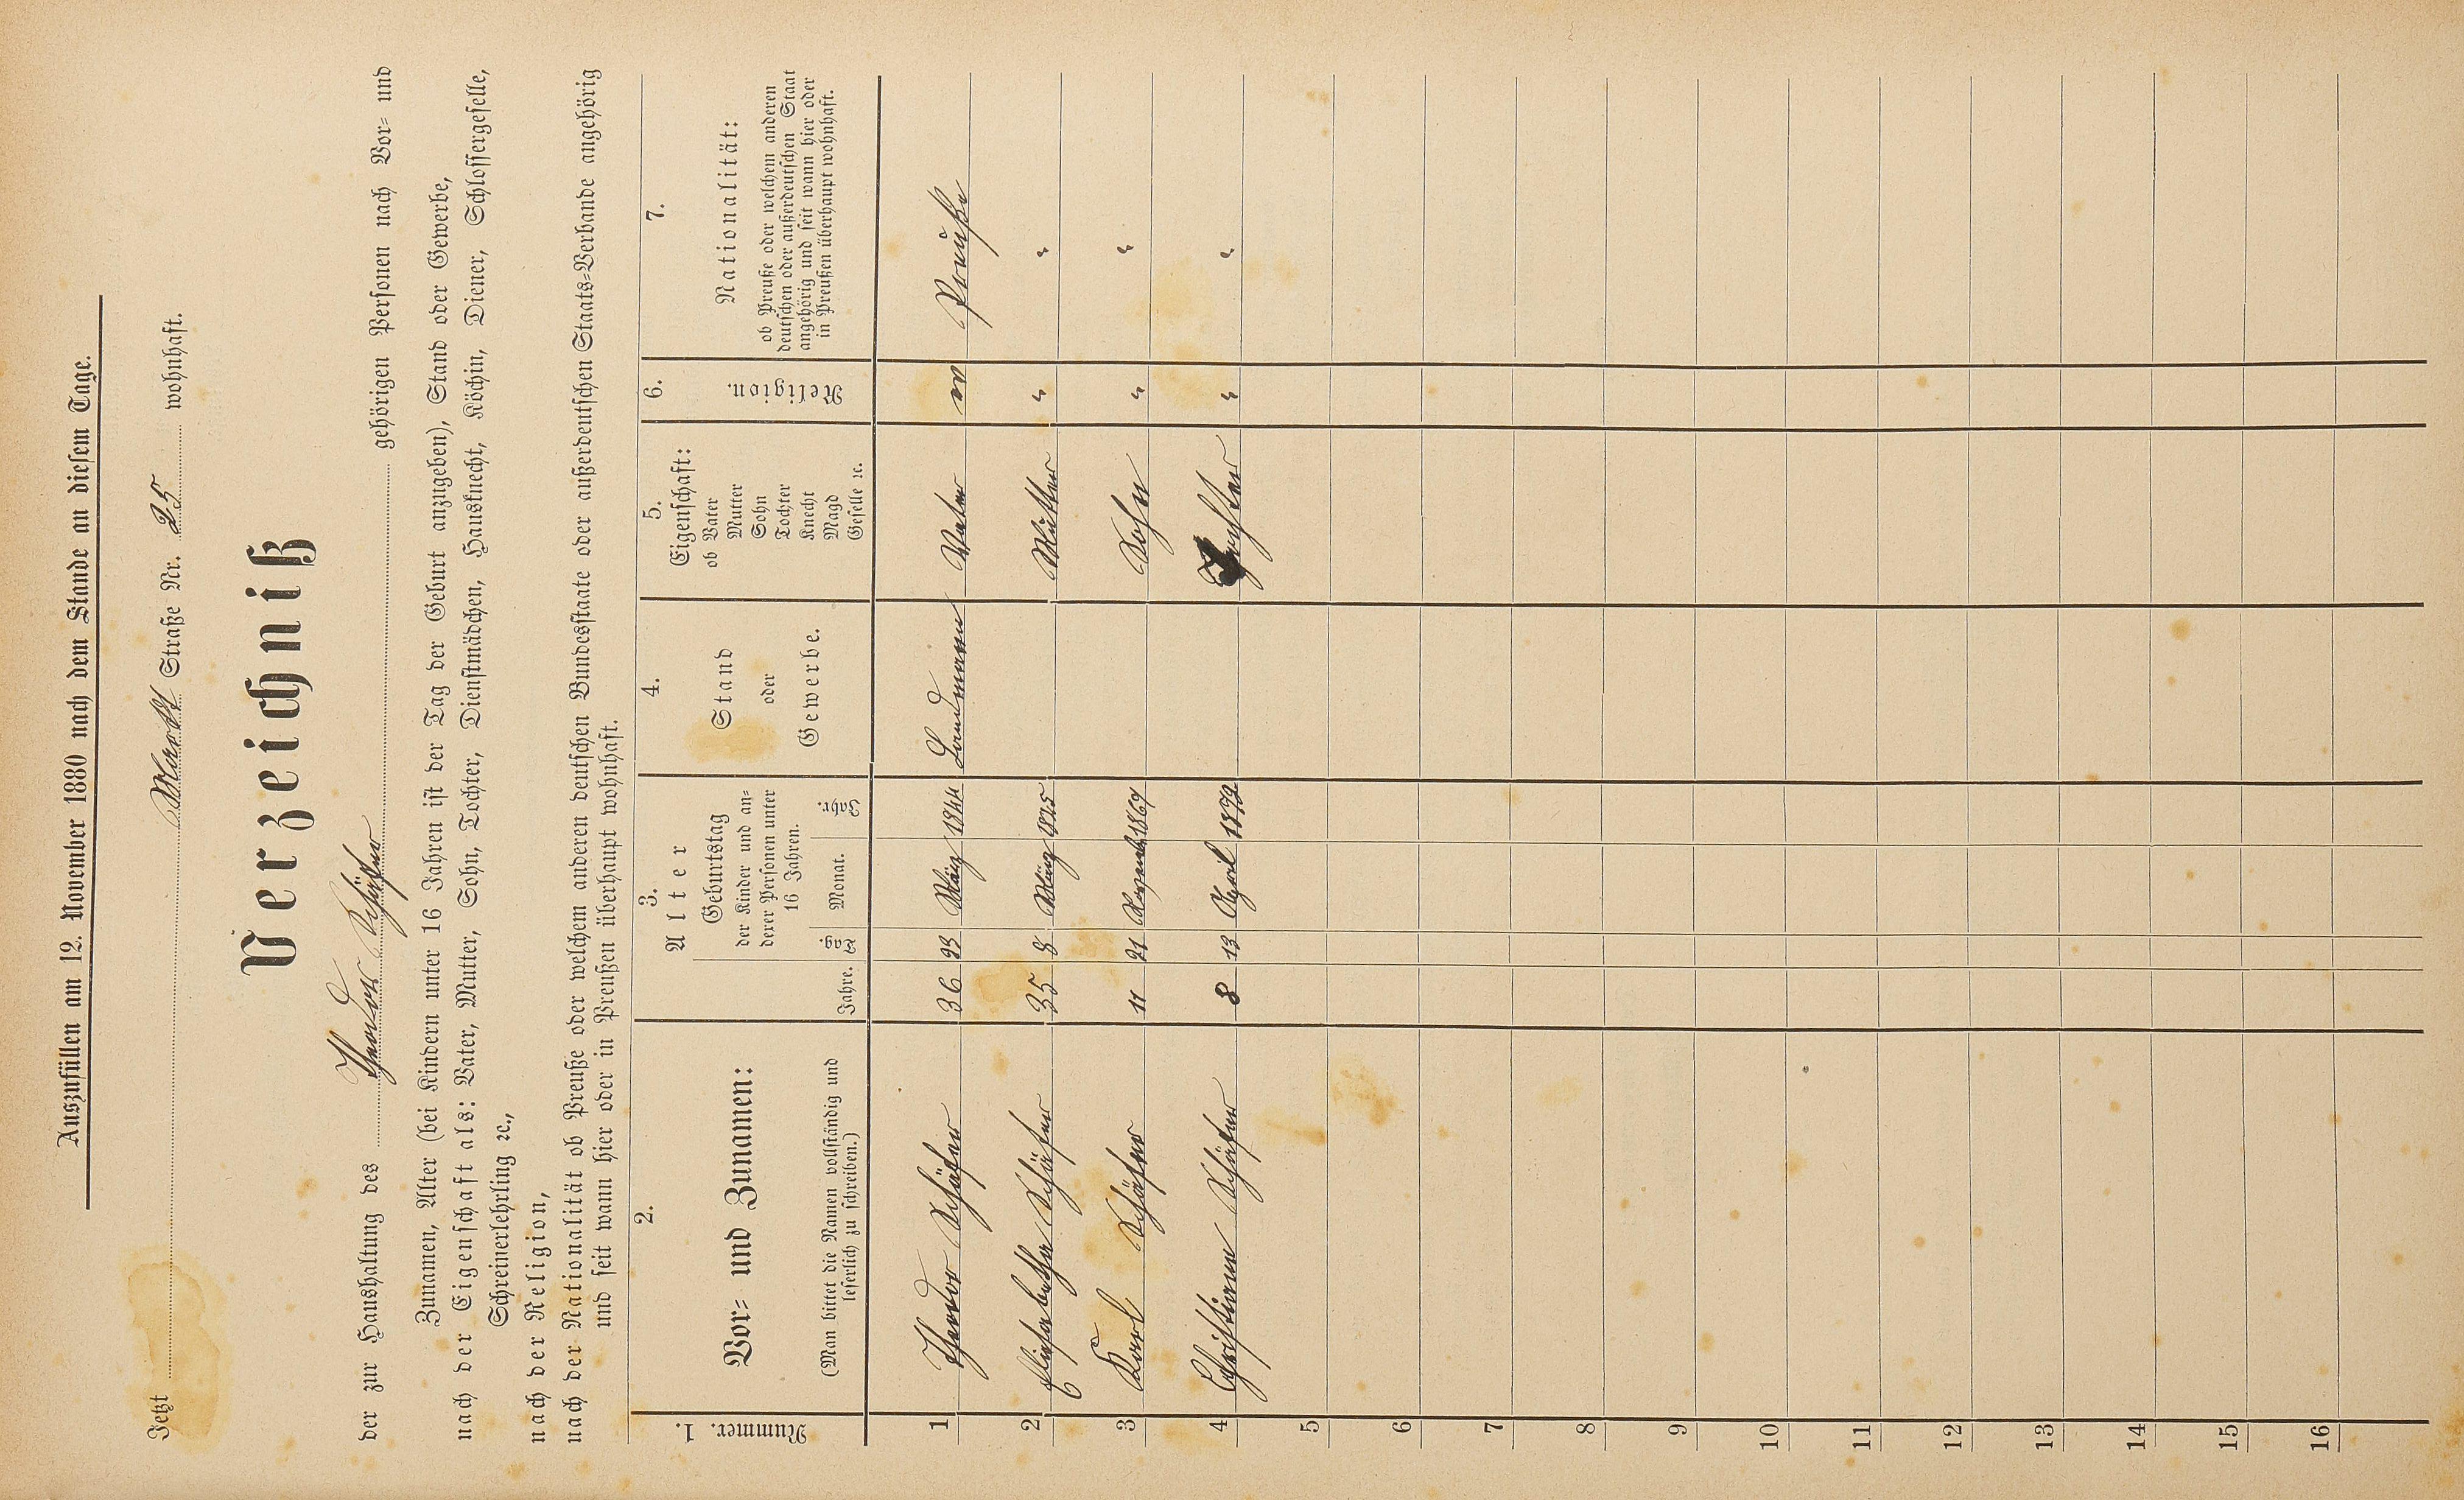 Auszufüllen am 12. November 1880 nach dem Stande an diesem Tage.
Jetzt Markt Straße Nr. 25 wohnhaft.
Verzeichniß
der zur Haushaltung des Theodor Schäfer gehörigen Personen nach Vor- und
Zunamen, Alter (bei Kindern unter 16 Jahren ist der Tag der Geburt anzugeben), Stand oder Gewerbe,
nach der Eigenschaft als: Vater, Mutter, Sohn, Tochter, Dienstmädchen, Hausknecht, Köchin, Diener, Schlossergeselle,
Schreinerlehrling ꝛc.,
nach der Religion,
nach der Nationalität ob Preuße oder welchem anderen deutschen Bundesstaate oder außerdeutschen Staats-Verbande angehörig
und seit wann hier oder in Preußen überhaupt wohnhaft.
1. Nummer.
2.
Vor- und Zunamen:
(Man bittet die Namen vollständig und
leserlich zu schreiben.)
3.
Alter
Jahre.
Geburtstag
der Kinder und an-
derer Personen unter
16 Jahren.
Tag. Monat. Jahr.
4.
Stand
oder
Gewerbe.
5.
Eigenschaft:
ob Vater
Mutter
Sohn
Tochter
Knecht
Magd
Geselle ꝛc.
6.
Religion.
7.
Nationalität:
ob Preuße oder welchem anderen
deutschen oder außerdeutschen Staat
angehörig und seit wann hier oder
in Preußen überhaupt wohnhaft.
1 Theodor Schäfer 36 23 März 1844 Landmann Vater Preuße
2 Elisabetha Schäfer 35 8 März 1845 Mutter " "
3 Karl Schäfer 11 21 1869 Sohn " "
4 Christiane Schäfer 8 13 April 1872 Tochter " "
5
6
7
8
9
10
11
12
13
14
15
16